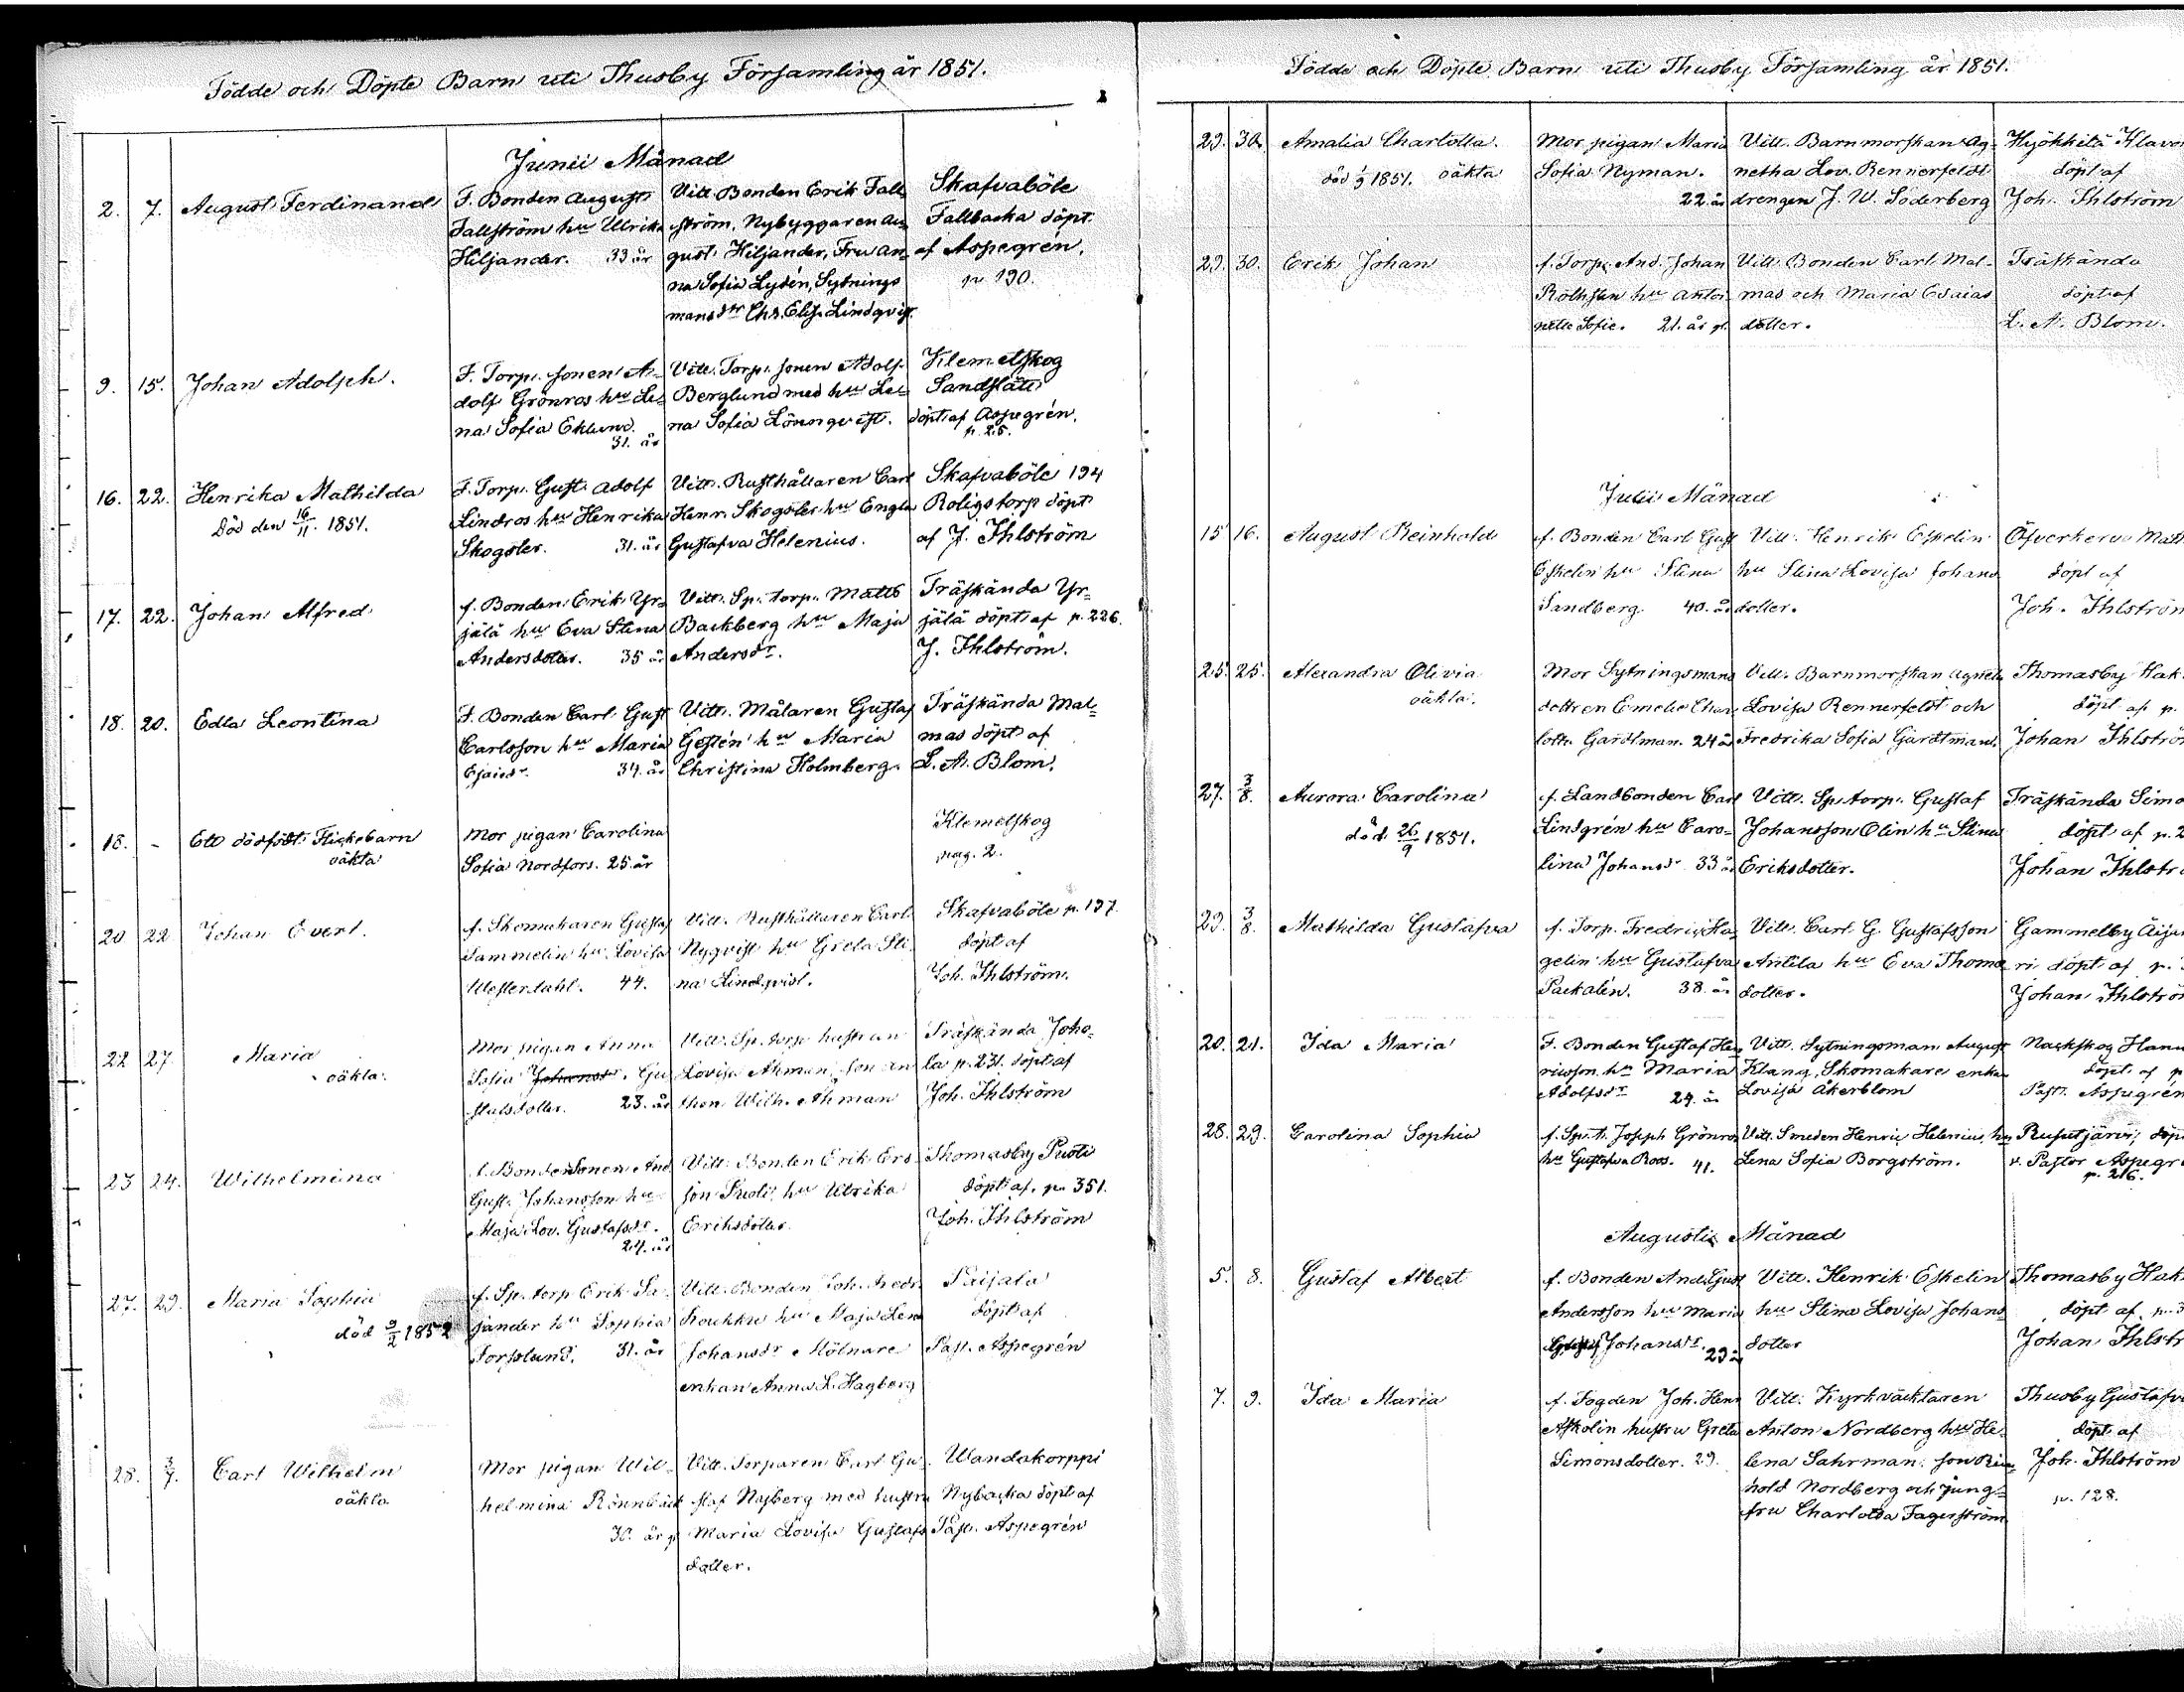 Födde och Döpte Barn uti Thusby Församling år 1851.
Junii Månad
2. 7. August Ferdinand
F. Bonden August
Fallström hu Ulrika
Hiljander. 33 år
Vitt. Bonden Erik Fall-
ström, Nybyggaren Au-
gust Hiljander, Fru An-
na Sofia Lydén, Sytnings
mans dtr Chr. Elis. Lindqvist.
Skafvaböle
Fallbacka döpt
af Aspegrén.
p. 190.
9. 15. Johan Adolph.
F. Torp. sonen A-
dolf Grönros hu Le-
na Sofia Eklund.
31. år
Vitt. Torp. sonen Adolf
Berglund med hu Le-
na Sofia Lönnqvist.
Klemetskog
Sandslätt
döpt af Aspegrén.
p. 25.
16. 22. Henrika Mathilda
Död den 16/11 1851.
F. Torp. Gust. Adolf
Lindros hu Henrika
Skogster. 31. år
Vitt. Rusthållaren Carl
Henr. Skogster hu Engla
Gustafva Helenius.
Skafvaböle 194
Roligstorp döpt
af J. Ihlström
17. 22. Johan Alfred
f. Bonden Erik Yr-
jälä hu Eva Stina
Andersdotter. 35 år
Vitt. Sp. torp. Matts
Backberg hu Maja
Andersdr.
Träskända Yr-
jälä döpt af p. 226.
J. Ihlström.
18. 20. Edla Leontina
F. Bonden Carl Gust
Carlsson hu Maria
Esaiedr. 34. år
Vitt. Målaren Gustaf
Gestén hu Maria
Christina Holmberg.
Träskända Mal-
mas döpt af
L. A. Blom.
18. - Ett dödfödt Flickebarn
oäkta
Mor pigan Carolina
Sofia Nordfors. 25 år
Klemetskog
pag. 2.
20 22 Johan Evert.
f. Skomakaren Gustaf
Sammelin hu Lovisa
Westerdahl. 44.
Vitt. Rusthållaren Carl
Nyqvist hu Greta Sti-
na Lindqvist.
Skafvaböle p. 197.
döpt af
Joh. Ihlström.
22 27. Maria
oäkta.
Mor pigan Anna
Sofia Johansdr. Gu
stafsdotter. 23. år
Vitt. Sp. torp. hustrun
Lovisa Åhman, son An
thon Wilh. Åhman
Träskända Joho-
la p. 231. döpt af
Joh. Ihlström
23 24. Wilhelmina
f. Bondesonen And
Gust. Johansson hu
Maja Lov. Gustafsdr.
24. år
Vitt. Bonden Erik Ers-
son Puoti hu Ulrika
Eriksdotter.
Thomasby Puoti
döpt af. p. 351.
Joh. Ihlström
27. 29. Maria Sophia
död 9/2 1852
f. Sp. torp Erik Sa-
jander hu Sophia
Forsslund. 31. år
Vitt. Bonden Joh. Fredr.
Koukku hu Maja Lena
Johansdr Mölnare
enkan Anna L. Hagberg
Paijala
döpt af
Past. Aspegrén
28. 3/7. Carl Wilhelm
oäkta.
Mor pigan Wil-
helmina Rönnbäck
30. år g
Vitt. Torparen Carl Gu-
staf Nyberg med hustru
Maria Lovisa Gustafs
dotter.
Wandakorppi
Nybacka döpt af
Past. Aspegrén
Födde och Döpte Barn uti Thusby Församling år 1851.
29. 30. Amalia Charlotta.
död 1/9 1851. oäkta
Mor pigan Maria
Sofia Nyman.
22 år
Vitt. Barnmorskan Ag-
netha Lov. Rennerfeldt
drengen J. W. Söderberg
Hyökkilä
döpt af
Joh. Ihlström
29. 30. Erik Johan
f. Torp. And. Johan
Rothsten hu Antoi-
nette Sofie. 21. år g.
Vitt. Bonden Carl Mal-
mas och Maria Esaias
dotter.
Träskända
döpt af
L. A. Blom.
Julii Månad
15 16. August Reinhold
f. Bonden Carl Gust
Eskelin hu Stina
Sandberg 40. år
Vitt. Henrik Eskelin
hu Stina Lovisa Johans
dotter.
Öfverkervo
döpt af
Joh. Ihlström
25. 25. Alexandra Olivia
oäkta.
Mor Sytningsmans
dottren Emelie Char-
lotta Gardtman. 24 år
Vitt. Barnmorskan Agneta
Lovisa Rennerfeldt och
Fredrika Sofia Gardtman.
Thomasby Hak
döpt af p.
Johan Ihlström
27. 3/8. Aurora Carolina
död 26/9 1851.
f. Landbonden Carl
Lindgrén hu Caro-
lina Johansdr 33 år
Vitt. Sp. torp. Gustaf
Johansson Olin hu Stina
Eriksdotter.
Träskända Simo
döpt af p. 2
Johan Ihlströ
29. 3/8. Mathilda Gustafva
f. Torp. Fredrik Ha-
gelin hu Gustafva
Packalén. 38. år
Vitt. Carl G. Gustafsson
Antila hu Eva Thoma
dotter.
Gammelby Äija
ri döpt af p.
Johan Ihlströ
20. 21. Ida Maria
F. Bonden Gustaf Hen
ricsson hu Maria
Adolfsdr 24. år
Vitt. Sytningsman August
Klang, Skomakare enka
Lovisa Åkerblom
Nackskog Hann
döpt af p
Past. Aspegrén
28. 29. Carolina Sophia
f. Sp. t. Joseph Grönros
hu Gustafva Roos. 41.
Vitt. Smeden Henric Helenius, hu
Lena Sofia Borgström.
Rusutjärvi, döpt
v. Pastor Aspegr
p. 216.
Augusti Månad
5. 8. Gustaf Albert
f. Bonden And. Gust
Andersson hu Maria
Johansdr. 29 år
Vitt. Henrik Eskelin
hu Stina Lovisa Johans
dotter
Thomasby Hak
döpt af p. 3
Johan Ihlstr
7. 9. Ida Maria
f. Fogden Joh. Henr
Askolin hustru Greta
Simonsdotter. 29.
Vitt. Kyrkväcktaren
Anton Nordberg hu He-
lena Sahrman. son Rein-
hold Nordberg och jung-
fru Charlotta Fagerström
Thusby Gustafv
döpt af
Joh. Ihlström
p. 128.